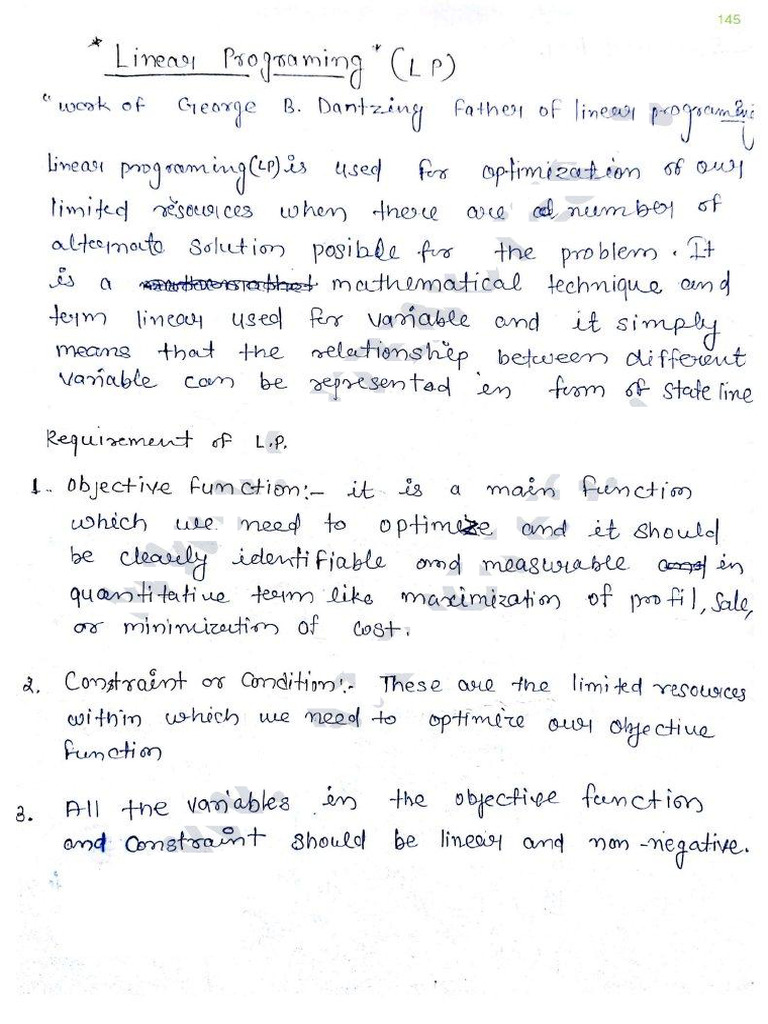 145
* Linear Programing * (LP)
"work of George B. Dantzing Father of linear programing
linear programing (LP) is used for optimization of our
limited resources when there are a number of
alternate solution posible for the problem. It
is a mathematical technique and
term linear used for variable and it simply
means that the relationship between different
variable can be represented in form of state line
Requirement of L.P.
1. Objective function:- it is a main function
which we need to optimize and it should
be clearly identifiable and measurable in
quantitative term like maximization of profit, sale,
or minimization of cost.
2. Constraint or Condition:- These are the limited resources
within which we need to optimize our objective
function
3. All the variables in the objective function
and constraint should be linear and non-negative.